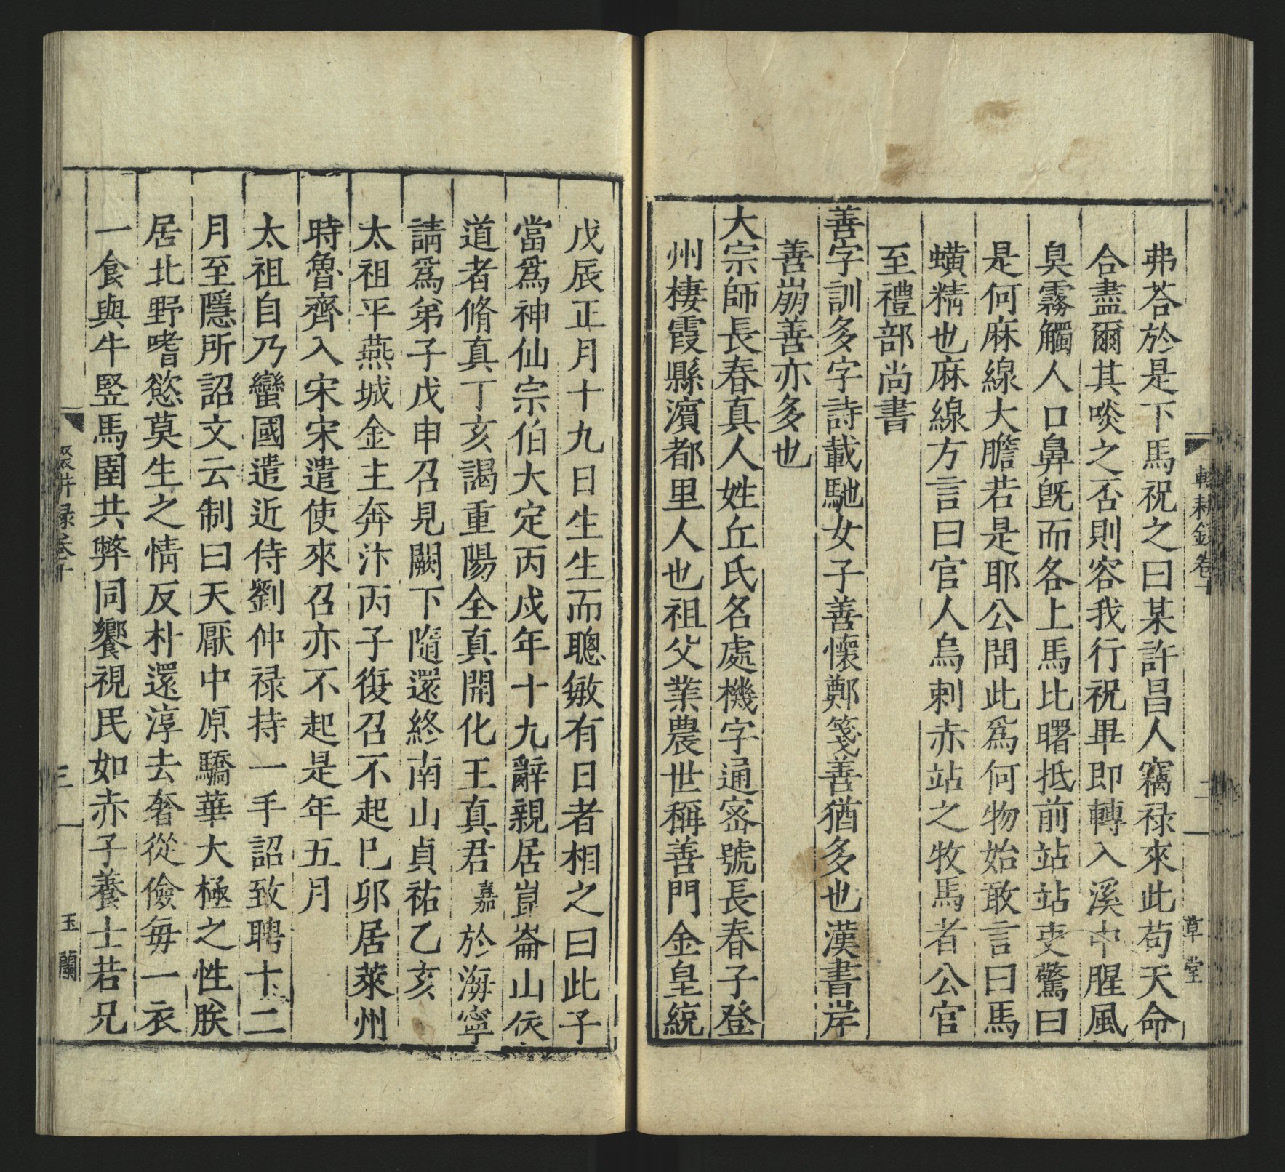 弗荅於是下馬祝之曰某許昌人竊禄來此苟天命
合盡爾其啖之否則容我行祝畢即轉入溪中腥風
臭霧觸人口鼻旣而各上馬比曙抵前站站吏驚曰
是何麻線大膽若是耶公問此爲何物始敢言曰馬
蟥精也麻線方言曰官人烏剌赤站之牧馬者公官
至禮部尚書
善字訓多字詩載馳女子善懷鄭箋善猶多也漢書岸
善崩善亦多也
大宗師長春真人姓丘氏名處機字通宻號長春子登
州棲霞縣濵都里人也祖父業農世稱善門金皇統
戊辰正月十九日生生而聰敏有日者相之曰此子
當爲神仙宗伯大定丙戍年十九辭親居崑崙山依
道者脩真丁亥謁重陽全真開化王真君嘉於海寧
請爲弟子戊申召見闕下隨還終南山貞祐乙亥
太祖平燕城金主奔汴丙子復召不起巳卯居萊州
時魯齊入宋宋遣使來召亦不起是年五月
太祖自乃蠻國遣近侍劉仲禄持一手詔致聘十二
月至隱所詔文云制曰天厭中原驕華大極之性朕
居北野嗜慾莫生之情反朴還淳去奢從儉每一衣
一食與牛竪馬圉共弊同饗視民如赤子養士若兄
輟耕錄卷十
二
草堂
三
玉蘭